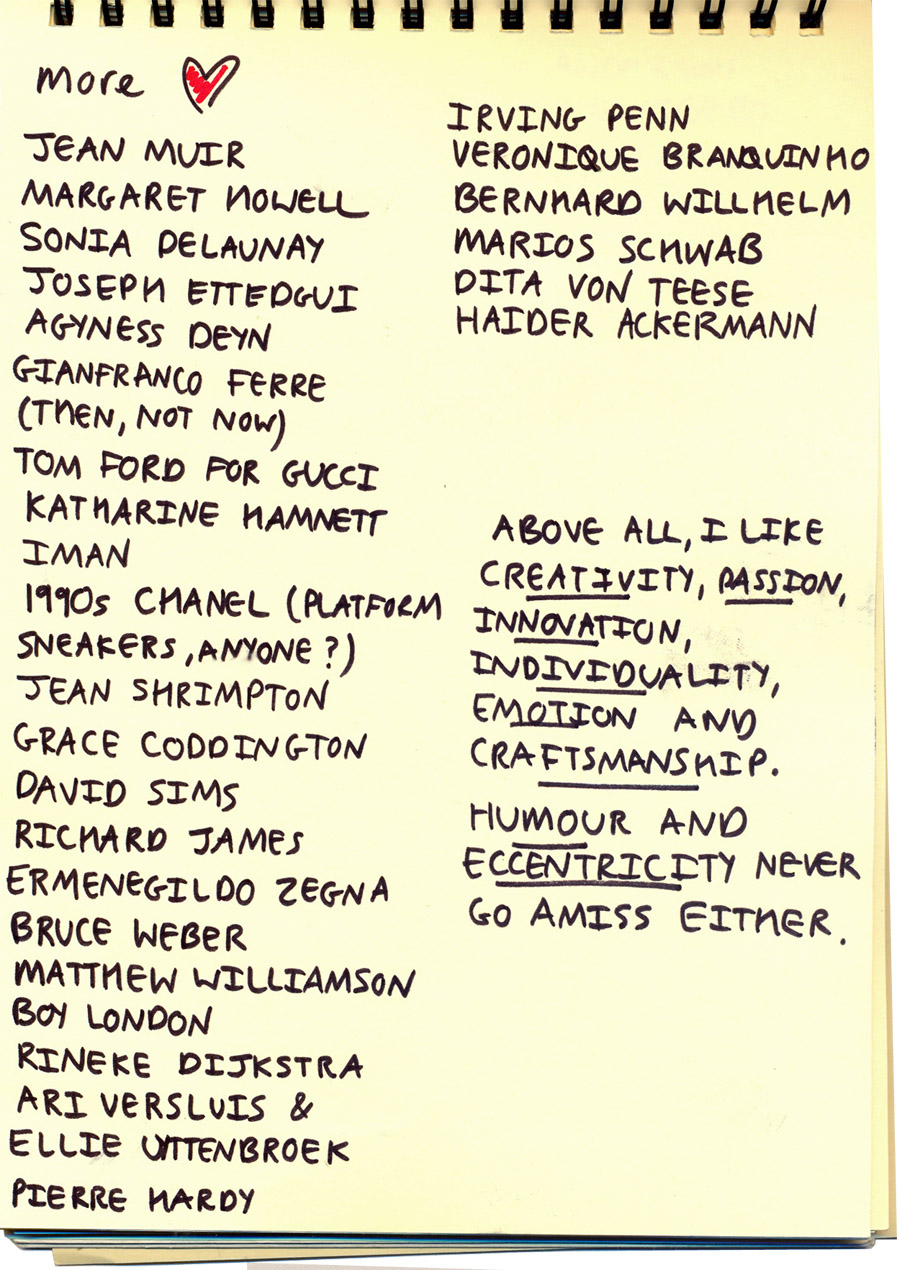 more
JEAN MUIR
MARGARET HOWELL
SONIA DELAUNAY
JOSEPH ETTEDGUI
AGYNESS DEYN
GIANFRANCO FERRE
(THEN, NOT NOW)
TOM FORD FOR GUCCI
KATHARINE HAMNETT
IMAN
1990s CHANEL (PLATFORM
SNEAKERS, ANYONE?)
JEAN SHRIMPTON
GRACE CODDINGTON
DAVID SIMS
RICHARD JAMES
ERMENEGILDO ZEGNA
BRUCE WEBER
MATTHEW WILLIAMSON
BOY LONDON
RINEKE DIJKSTRA
ARI VERSLUIS &
ELLIE UYTTENBROEK
PIERRE HARDY
IRVING PENN
VERONIQUE BRANQUINHO
BERNHARD WILLHELM
MARIOS SCHWAB
DITA VON TEESE
HAIDER ACKERMANN
ABOVE ALL, I LIKE
CREATIVITY, PASSION,
INNOVATION,
INDIVIDUALITY,
EMOTION AND
CRAFTSMANSHIP.
HUMOUR AND
ECCENTRICITY NEVER
GO AMISS EITHER.